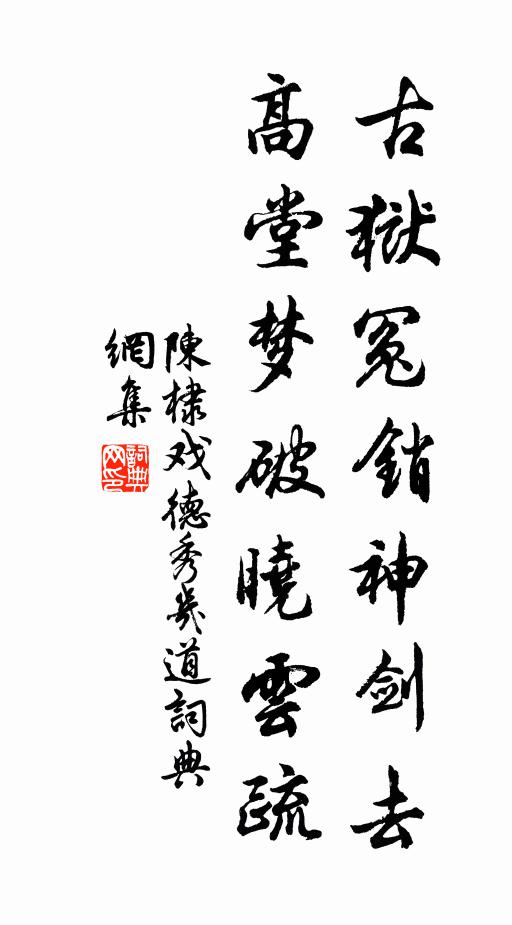 古獄冤銷神剑去
高堂梦破曉雲疏
陳棣戏德秀幾道詞典
網集
詞典
网印